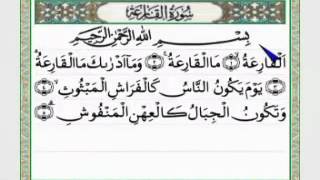 سُورَةُ القَارِعَة
بِسْمِ اللهِ الرَّحْمٰنِ الرَّحِيْمِ
اَلْقَارِعَةُ ﴿١﴾ مَا الْقَارِعَةُ ﴿٢﴾ وَمَآ اَدْرٰىكَ مَا الْقَارِعَةُ
﴿٣﴾ يَوْمَ يَكُوْنُ النَّاسُ كَالْفَرَاشِ الْمَبْثُوْثِ ﴿٤﴾
وَتَكُوْنُ الْجِبَالُ كَالْعِهْنِ الْمَنْفُوْشِ ﴿٥﴾